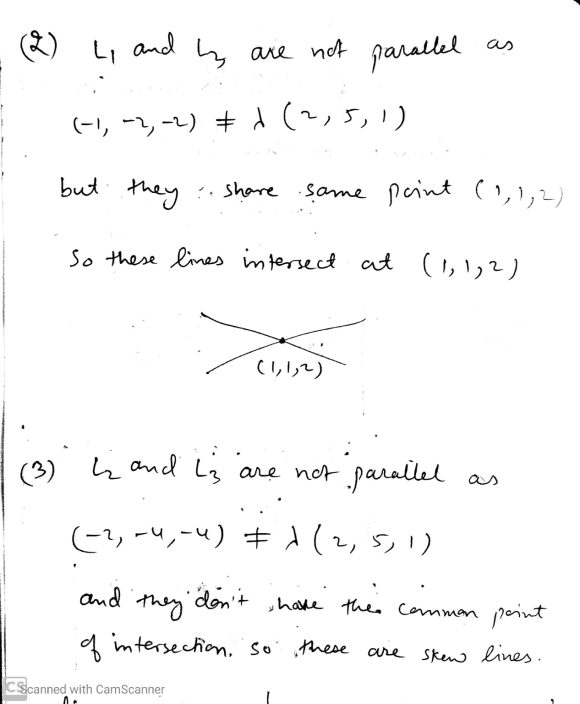 (2) L1 and L3 are not parallel as
(-1, -2, -2) ≠ λ (2, 5, 1)
but they share same point (1,1,2)
So these lines intersect at (1,1,2)
(1,1,2)
(3) L2 and L3 are not parallel as
(-2, -4, -4) ≠ λ (2, 5, 1)
and they don't have the common point
of intersection. So these are skew lines.
CS Scanned with CamScanner